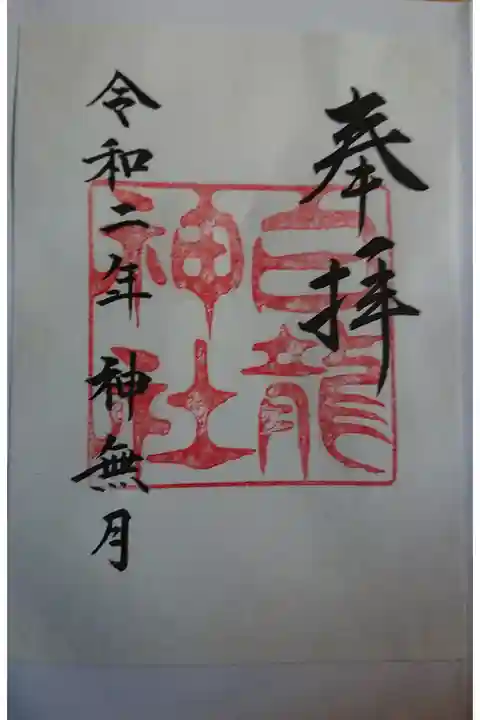 奉拝
白龍
神社
令和二年 神無月